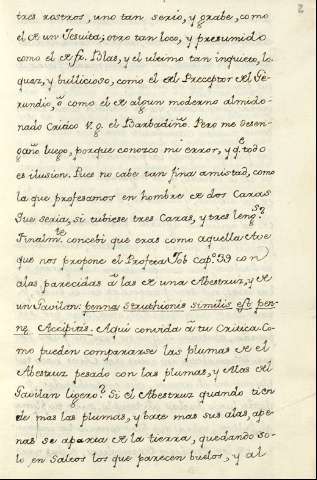 2
tres rostros, uno tan serio, y grabe, como
el de un Jesuita; otro tan loco, y presumido
como el de fr. Blas, y el ultimo tan inquieto, lo-
quaz, y bullicioso, como el del Preceptor del Ge-
rundio, ò como el de algun moderno almido-
nado Critico v. g. el Barbadiño. Pero me desen-
gaño luego, porque conozco mi error, y q.e todo
es ilusion. Pues no cabe tan fina amistad, como
la que profesamos en hombre de dos Caras
Que seria, si tubiese tres Caras, y tres leng.s?
Finalm.te concebi que eras como aquella Ave
que nos propone el Profeta Job cap.o 39 con
alas parecidas à las de una Abestruz, y de
un Gavilan: penna struthionis similis est pen-
nę Accipitis. Aqui convida à tu Critica. Co-
mo pueden compararse las plumas de el
Abestruz pesado con las plumas, y Alas del
Gavilan ligero? Si el Abestruz quando tien-
de mas las plumas, y bate mas sus alas, ape-
nas se aparta de la tierra, quedando so-
lo en Saltos los que parecen buelos, y al